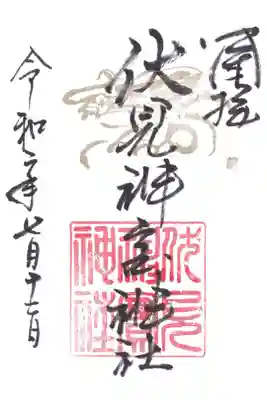 奉拝
伏見神宝神社
伏見神寶神社
令和二年七月十二日